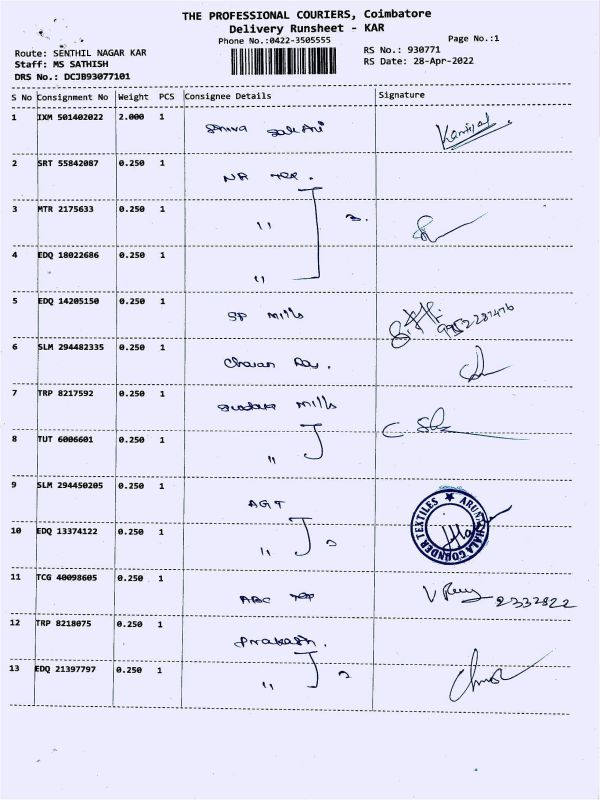 THE PROFESSIONAL COURIERS, Coimbatore
Delivery Runsheet - KAR
Phone No.:0422-3505555
Page No.:1
Route: SENTHIL NAGAR KAR
RS No.: 930771
Staff: MS SATHISH
RS Date: 28-Apr-2022
DRS No.: DCJB93077101
S No Consignment No Weight PCS Consignee Details Signature
1 IXM 501402022 2.000 1
2 SRT 55842087 0.250 1
3 MTR 2175633 0.250 1 " 3.
4 EDQ 18022686 0.250 1 "
5 EDQ 14205150 0.250 1 SP mills
6 SLM 294482335 0.250 1
7 TRP 8217592 0.250 1 mills
8 TUT 6006601 0.250 1 "
9 SLM 294450205 0.250 1 AGT
10 EDQ 13374122 0.250 1 " 2
ARUNACHALA GOUNDER TEXTILES
11 TCG 40098605 0.250 1 ABC 2332822
12 TRP 8218075 0.250 1 Prakash.
13 EDQ 21397797 0.250 1 " 2